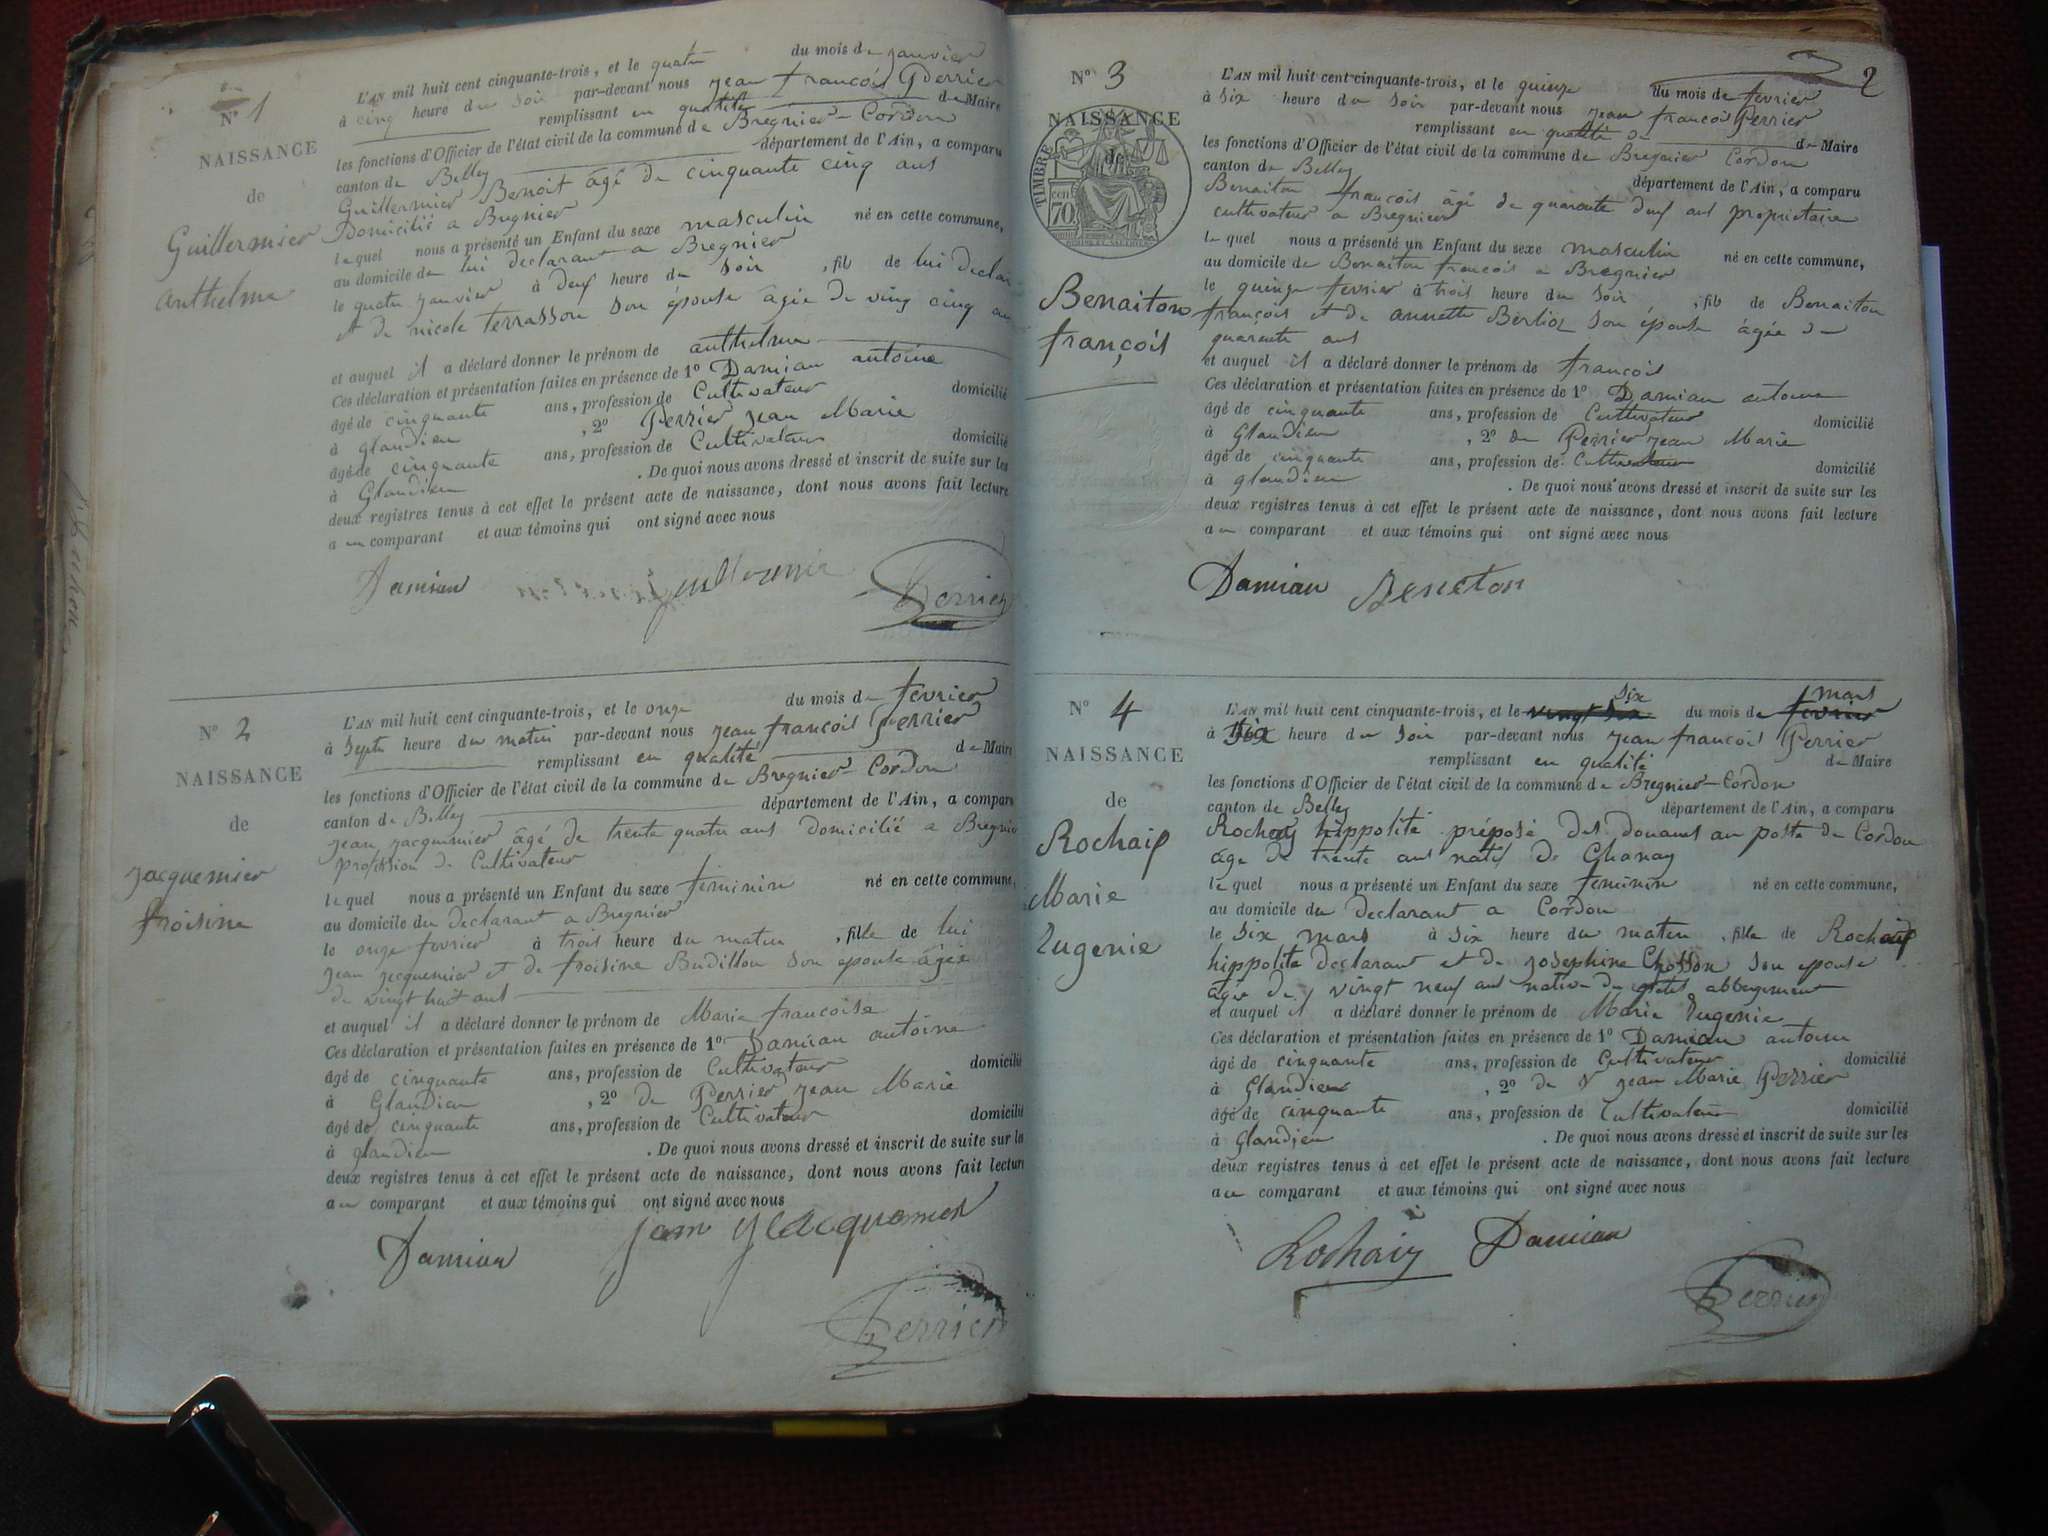 N° 1
NAISSANCE
de
Guillermier
anthelme
L'AN mil huit cent cinquante-trois, et le quatre du mois de janvier
à cinq heure du soir par-devant nous jean françois Perrier
remplissant en qualité de Maire
les fonctions d'Officier de l'état civil de la commune de Bregnier-Cordon
canton de Belley département de l'Ain, a comparu
Guillermier Benoit âgé de cinquante cinq ans
Domicilié a Bregnier
lequel nous a présenté un Enfant du sexe masculin né en cette commune,
au domicile de lui declarant a Bregnier
le quatre janvier à deux heure du soir , fils de lui declar
et de nicole terrasson son épouse âgée de ving cinq ans
et auquel il a déclaré donner le prénom de anthelme
Ces déclaration et présentation faites en présence de 1° Damian antoine
âgé de cinquante ans, profession de Cultivateur domicilié
à glandieu , 2° Perrier jean Marie
âgé de cinquante ans, profession de Cultivateur domicilié
à Glandieu . De quoi nous avons dressé et inscrit de suite sur les
deux registres tenus à cet effet le présent acte de naissance, dont nous avons fait lecture
au comparant et aux témoins qui ont signé avec nous
Damian Perrier
N° 2
NAISSANCE
de
jacquemier
froisine
L'AN mil huit cent cinquante-trois, et le onze du mois de fevrier
à Septe heure du matin par-devant nous jean françois Perrier
remplissant en qualité de Maire
les fonctions d'Officier de l'état civil de la commune de Bregnier-Cordon
canton de Belley département de l'Ain, a comparu
jean jacquemier âgé de trente quatre ans domicilié a Bregnier
profession de Cultivateur
lequel nous a présenté un Enfant du sexe feminin né en cette commune,
au domicile du declarant a Bregnier
le onze fevrier à trois heure du matin , fille de lui
jean jacquemier et de froisine Budillon son epouse âgée
de vingt huit ans
et auquel il a déclaré donner le prénom de Marie francoise
Ces déclaration et présentation faites en présence de 1° Damian antoine
âgé de cinquante ans, profession de Cultivateur domicilié
à Glandieu , 2° de Perrier jean Marie
âgé de cinquante ans, profession de Cultivateur domicilié
à glandieu . De quoi nous avons dressé et inscrit de suite sur les
deux registres tenus à cet effet le présent acte de naissance, dont nous avons fait lecture
au comparant et aux témoins qui ont signé avec nous
Damian jean jacquemier
Perrier
2
N° 3
NAISSANCE
de
TIMBRE
70
Benaiton
françois
L'AN mil huit cent cinquante-trois, et le quinze du mois de fevrier
à six heure du soir par-devant nous jean francois Perrier
remplissant en qualité de Maire
les fonctions d'Officier de l'état civil de la commune de Bregnier Cordon
canton de Belley département de l'Ain, a comparu
Benaiton françois âgé de quarante deux ans propriétaire
cultivateur a Bregnier
lequel nous a présenté un Enfant du sexe masculin né en cette commune,
au domicile de Benaiton françois a Bregnier
le quinze fevrier à trois heure du soir , fils de Benaiton
françois et de annette Berlioz son épouse âgée de
quarente ans
et auquel il a déclaré donner le prénom de françois
Ces déclaration et présentation faites en présence de 1° Damian antoine
âgé de cinquante ans, profession de Cultivateur domicilié
à Glandieu , 2° de Perrier jean Marie
âgé de cinquante ans, profession de Cultivateur domicilié
à glandieu . De quoi nous avons dressé et inscrit de suite sur les
deux registres tenus à cet effet le présent acte de naissance, dont nous avons fait lecture
au comparant et aux témoins qui ont signé avec nous
Damian Beneton
N° 4
NAISSANCE
de
Rochaix
Marie
Eugenie
six mars
L'AN mil huit cent cinquante-trois, et le vingt six du mois de fevrier
à six heure du soir par-devant nous jean françois Perrier
remplissant en qualité de Maire
les fonctions d'Officier de l'état civil de la commune de Bregnier-Cordon
canton de Belley département de l'Ain, a comparu
Rochaix hippolite préposé des douanes au poste de Cordon
âge de trente ans natif de Chanay
lequel nous a présenté un Enfant du sexe feminin né en cette commune,
au domicile du declarant a Cordon
le six mars à six heure du matin , fille de Rochaix
hippolite declarant et de josephine Chosson son epouse
âgée de vingt neuf ans native du petit abbergement
et auquel il a déclaré donner le prénom de Marie Eugenie
Ces déclaration et présentation faites en présence de 1° Damian antoine
âgé de cinquante ans, profession de Cultivateur domicilié
à Glandieu , 2° de jean Marie Perrier
âgé de cinquante ans, profession de Cultivateur domicilié
à Glandieu . De quoi nous avons dressé et inscrit de suite sur les
deux registres tenus à cet effet le présent acte de naissance, dont nous avons fait lecture
au comparant et aux témoins qui ont signé avec nous
Rochaix Damian
Perrier